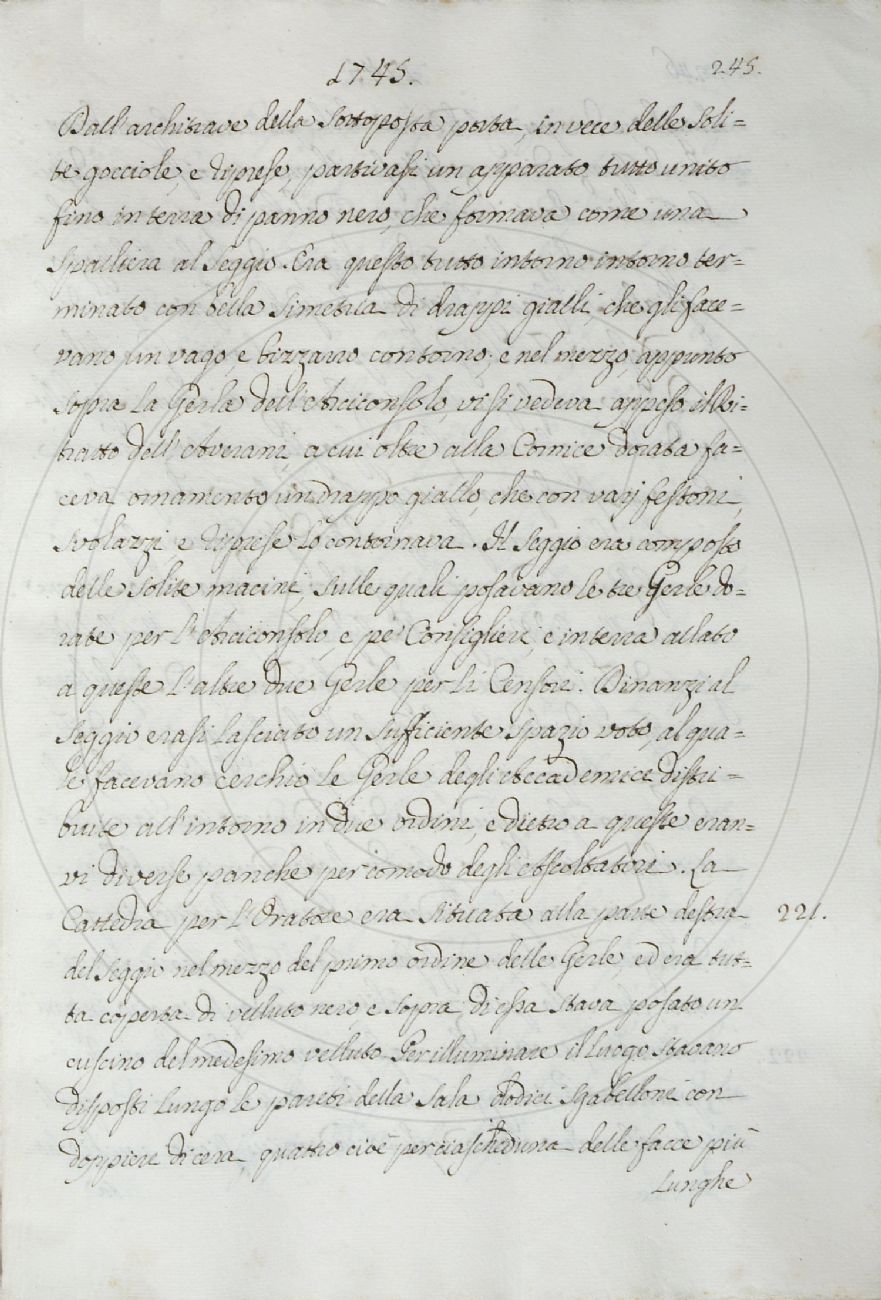 1745.
245.
Dall'architrave della sottoposta porta, invece delle soli=
te gocciole, e riprese, partivasi un apparato tutto unito
fino in terra di panno nero, che formava come una
Spalliera al Seggio. Era questo tutto intorno intorno ter=
minato con bella simetria di drappi gialli, che gli face=
vano un vago, e bizzarro contorno; e nel mezzo, appunto
sopra la Gerla dell'Arciconsolo, vi si vedeva appeso il Ri=
tratto dell'Averani, a cui oltre alla Cornice dorata fa=
ceva ornamento un drappo giallo che con varj festoni,
svolazzi e riprese lo contornava. Il Seggio era composto
delle solite macini, sulle quali posavano le tre Gerle do=
rate per l'Arciconsolo, e pe' Consiglieri, e in terra allato
a queste l'altre due Gerle per li Censori. Dinanzi al
Seggio erasi lasciato un sufficiente spazio voto, al qua=
le facevano cerchio le Gerle degli Accademici distri=
buite all'intorno in due ordini, e dietro a queste eran=
vi diverse panche per comodo degli Ascoltatori. La
Cattedra per l'Oratore era situata alla parte destra
221.
del Seggio nel mezzo del primo ordine delle Gerle, ed era tut=
ta coperta di velluto nero, e sopra di essa stava posato un
cuscino del medesimo velluto. Per illuminare il luogo stavano
disposti lungo le pareti della Sala dodici sgabelloni con
doppieri di cera, quattro cioè per ciascheduna delle facce più
lunghe